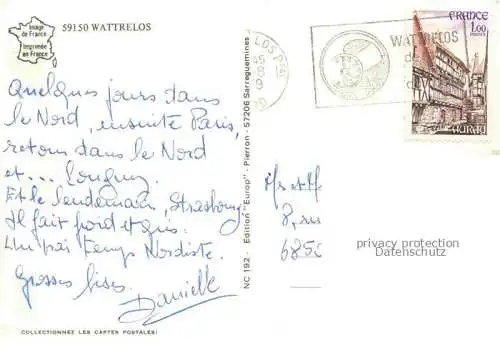 Image
de France
Imprimée
en France
59150 WATTRELOS
Quelques jours dans
le Nord, ensuite Paris,
retour dans le Nord
et... Longwy.
Et le lendemain, Strasbourg.
Il fait froid et gris.
Un vrai temps Nordiste.
Grosses bises.
Danielle
COLLECTIONNEZ LES CARTES POSTALES!
NC 192 - Edition "Europ" - Pierron - 57206 Sarreguemines
LOS PAL
45
8
9
WATTRELOS
FRANCE
1,00
POSTES
AURAY
Mr et M
8, rue
6850
privacy protection
Datenschutz